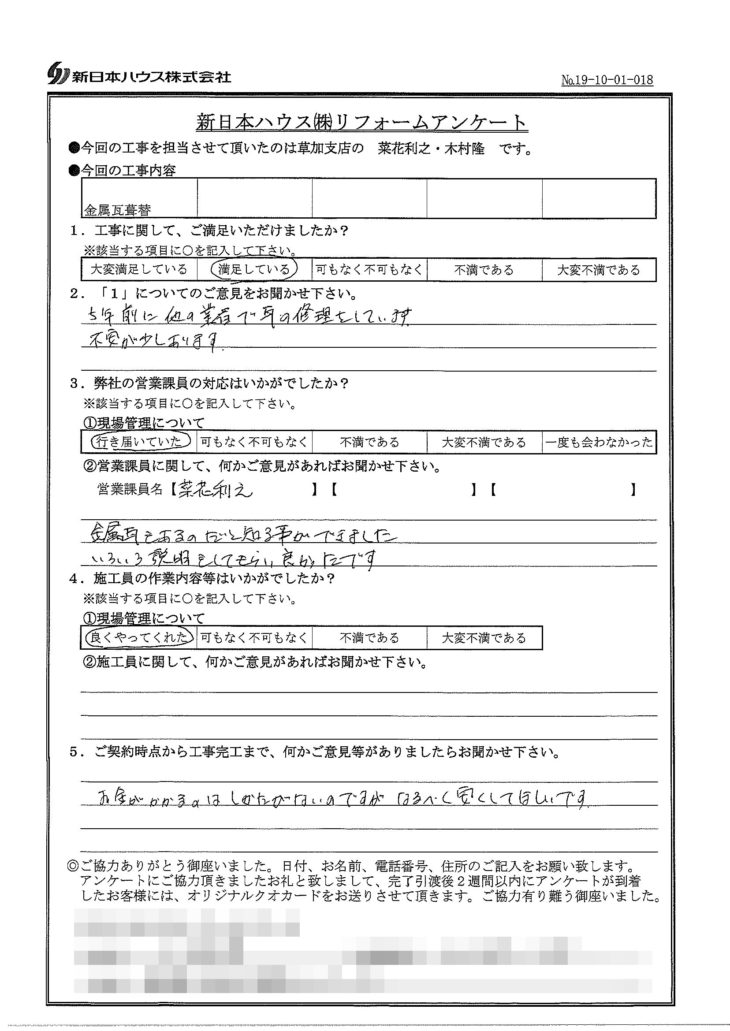 新日本ハウス株式会社
№19-10-01-018
新日本ハウス㈱リフォームアンケート
●今回の工事を担当させて頂いたのは草加支店の 菜花利之・木村隆 です。
●今回の工事内容
金属瓦葺替
1．工事に関して、ご満足いただけましたか？
※該当する項目に○を記入して下さい。
大変満足している 満足している 可もなく不可もなく 不満である 大変不満である
2．「1」についてのご意見をお聞かせ下さい。
5年前に他の業者で瓦の修理をしています
不安が少しあります
3．弊社の営業課員の対応はいかがでしたか？
※該当する項目に○を記入して下さい。
①現場管理について
行き届いていた 可もなく不可もなく 不満である 大変不満である 一度も会わなかった
②営業課員に関して、何かご意見があればお聞かせ下さい。
営業課員名【菜花利之 】【 】【 】
金属瓦もあるのだと知る事ができました
いろいろ説明をしてもらい良かったです
4．施工員の作業内容等はいかがでしたか？
※該当する項目に○を記入して下さい。
①現場管理について
良くやってくれた 可もなく不可もなく 不満である 大変不満である
②施工員に関して、何かご意見があればお聞かせ下さい。
5．ご契約時点から工事完工まで、何かご意見等がありましたらお聞かせ下さい。
お金がかかるのはしかたがないのですが なるべく安くしてほしいです
◎ご協力ありがとう御座いました。日付、お名前、電話番号、住所のご記入をお願い致します。
アンケートにご協力頂きましたお礼と致しまして、完了引渡後２週間以内にアンケートが到着
したお客様には、オリジナルクオカードをお送りさせて頂きます。ご協力有り難う御座いました。